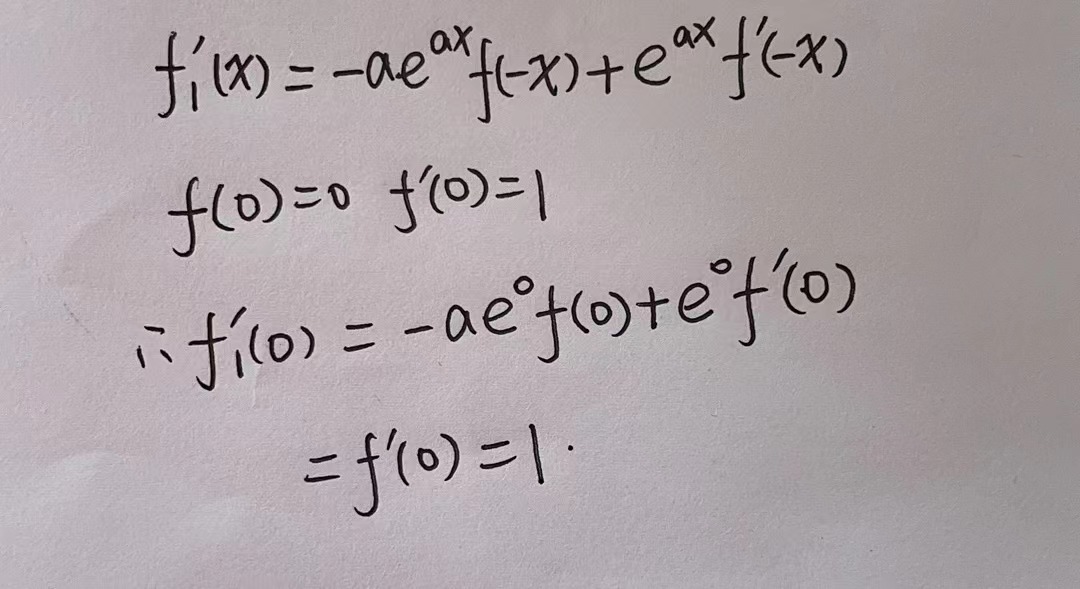 f₁′(x) = -ae^{ax}f(-x)+e^{ax}f′(-x)
f(0)=0 f′(0)=1
∴ f₁′(0) = -ae⁰f(0)+e⁰f′(0)
=f′(0)=1.